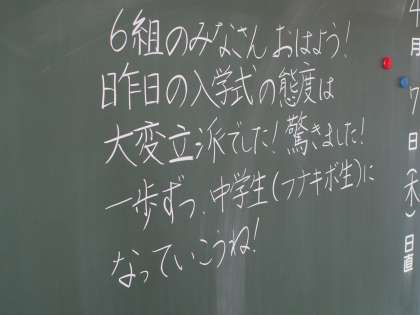 6組のみなさんおはよう!
昨日の入学式の態度は
大変立派でした!驚きました!
一歩ずつ、中学生(フナキボ生)に
なっていこうね!
4月7日(木)日直